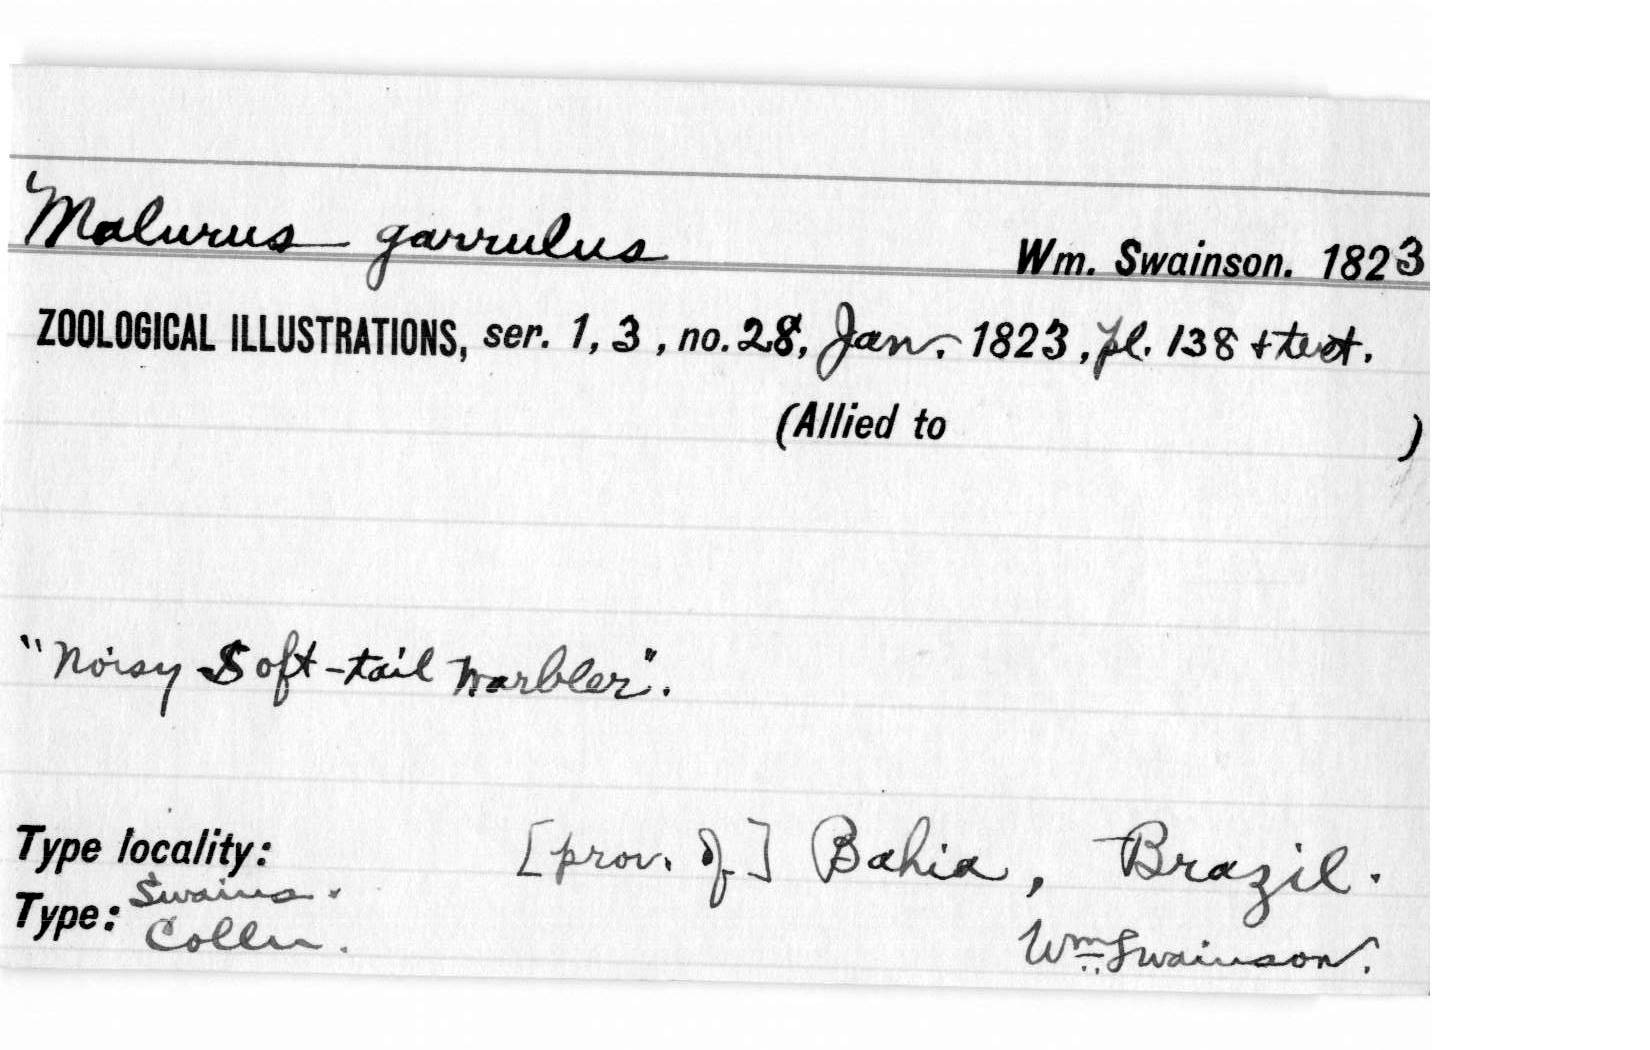 Malurus garrulus
Wm. Swainson. 1823
ZOOLOGICAL ILLUSTRATIONS, ser. 1, 3, no. 28, Jan. 1823, pl. 138 + text.
(Allied to )
"Noisy Soft-tail Warbler".
Type locality: [prov. of] Bahia, Brazil.
Type: Swains. Colln.
Wm Swainson.